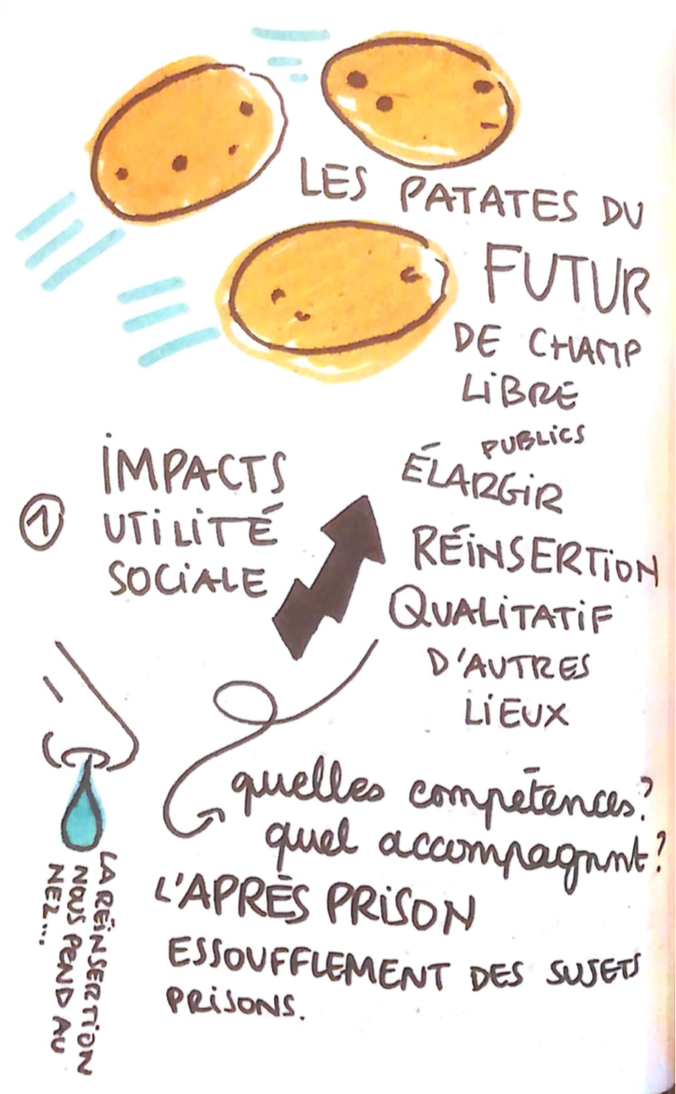 LES PATATES DU
FUTUR
DE CHAMP
LIBRE
IMPACTS
① UTILITÉ
SOCIALE
PUBLICS
ÉLARGIR
RÉINSERTION
QUALITATIF
D'AUTRES
LIEUX
quelles compétences?
quel accompagnmt?
L'APRÈS PRISON
ESSOUFFLEMENT DES SUJETS
PRISONS.
LA RÉINSERTION
NOUS PEND AU
NEZ...